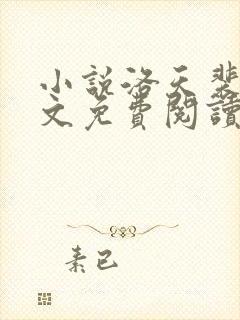 小說洛天裴
文免費閱讀
素已